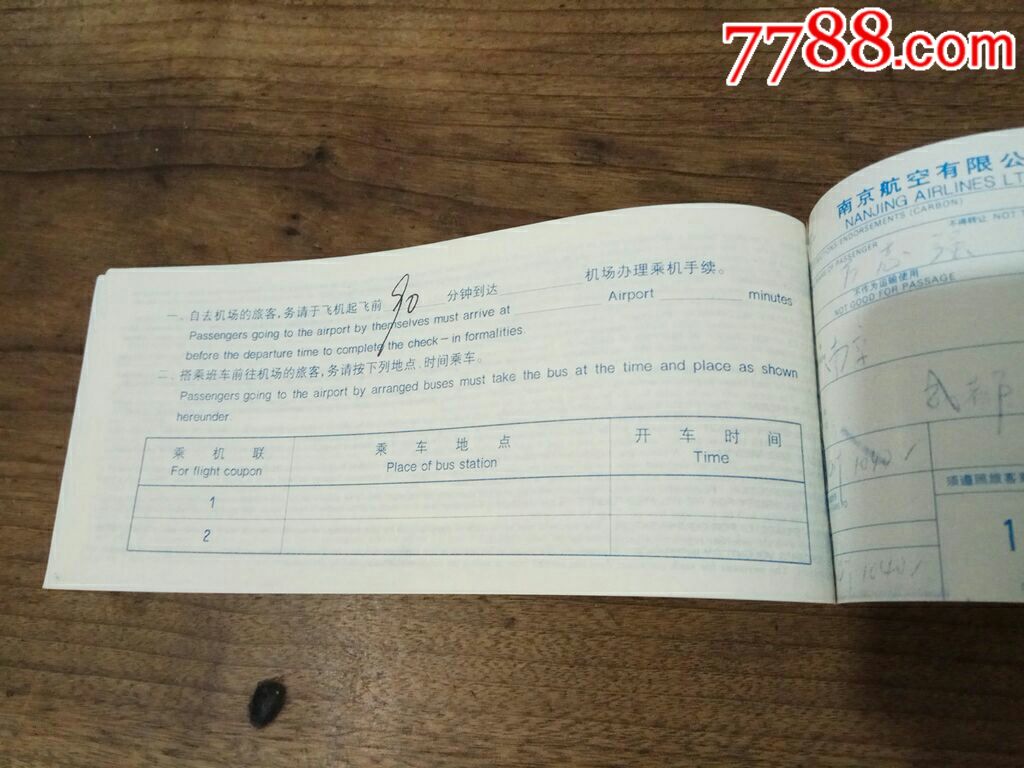 7788.com
一、自去机场的旅客,务请于飞机起飞前 90 分钟到达 机场办理乘机手续。
Passengers going to the airport by themselves must arrive at Airport minutes
before the departure time to complete the check-in formalities.
二、搭乘班车前往机场的旅客,务请按下列地点、时间乘车。
Passengers going to the airport by arranged buses must take the bus at the time and place as shown
hereunder.
乘 机 联 乘 车 地 点 开 车 时 间
For flight coupon Place of bus station Time
1
2
南京航空有限公
NANJING AIRLINES LT
ENDORSEMENTS (CARBON) 不得转让 NOT
OF PASSENGER
不作为运输使用
NOT GOOD FOR PASSAGE
成都
1040
须遵照旅客
1
1040